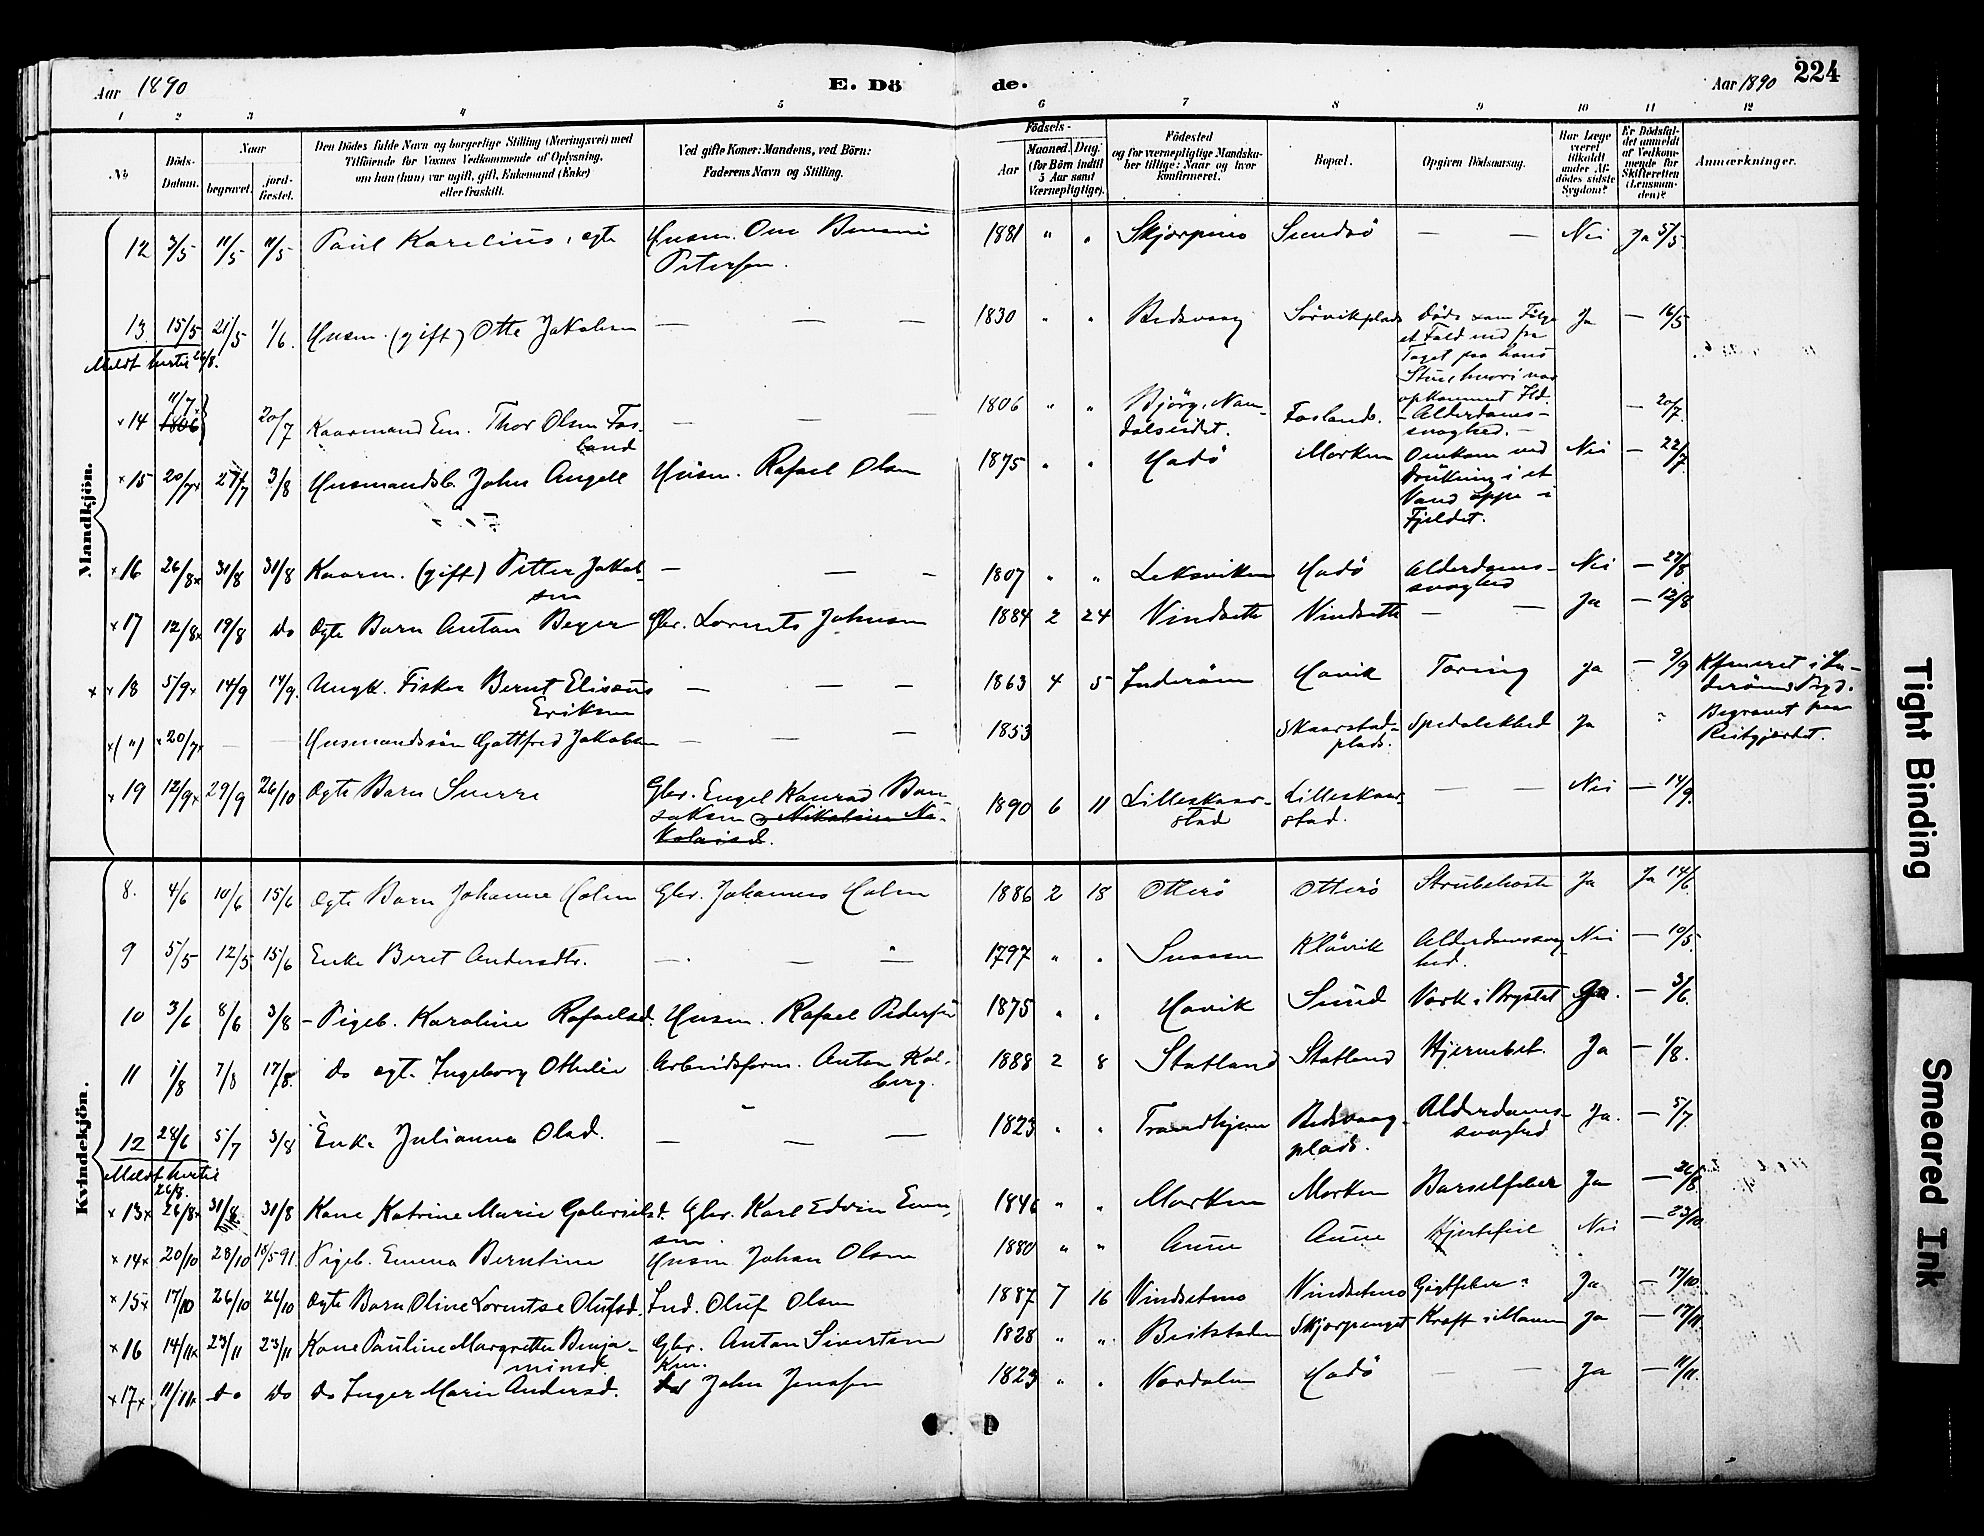 Aar 1890 E. Dö de. Aar 1890 224
1 2 3 4 5 6 7 8 9 10 11 12
No
Döds-Datum.
Naar
begravet.
jord-fæstet.
Den Dödes fulde Navn og borgerlige Stilling (Næringsvei) med
Tilföiende for Voxnes Vedkommende af Oplysning,
om hun (han) var ugift, gift, Enkemand (Enke)
eller fraskilt.
Ved gifte Koner: Mandens, ved Börn:
Faderens Navn og Stilling.
Födsels-
Aar
Maaned. Dag.
(for Börn indtil
5 Aar samt
Værnepligtige).
Födested
og for værnepligtige Mandska-
ber tillige: Naar og hvor
konfirmeret.
Bopæl.
Opgiven Dödsaarsag.
Har Læge
været
tilkaldt
under Af-
dödes sidste
Sygdom?
Er Dödsfal-
det anmeldt
af Vedkom-
mende for
Skifteretten
(Lensman-
den)?
Anmærkninger.
Mandkjön.
12 3/5 11/5 11/5 Paul Karelius, egte Husm. Ole 1881 " " Sundsö — — Nei Ja 5/5
Petersen.
13 15/5 21/5 1/6. Husm. (gift) Otte Jakobsen — — — 1830 " " Bedsvaag Sörvikplads Döde som Fölge Ja — 16/5
et Fald ned fra
Taget paa hans
Meldt hertil 26/8.
14 11/7 1806 20/7 Kaarmand Em. Thor Olsen Fos-land — — 1806 " " Björg, Nam-dalseidet. Fosland. Alderdoms-svaghed. — 20/7.
15 20/7 27/7 3/8 Husmandsb. John Angell Husm. Rafael Olsen 1875 " " Hadö Morken Omkom ved Nei — 22/7
Drukning i et
Vand oppe i
Fjeldet.
16 26/8 31/8 31/8 Kaarm. (gift) Petter Jakob-sen — — — 1807 " " Leksviken Hadö Alderdoms-svaghed Nei — 27/8
17 12/8 19/8 do Egte Barn Anton Beyer Gbr. Lorents Johnsen 1884 2 24 Vindsette Vindsette — — Ja — 12/8
18 5/9 14/9 14/9. Ungk. Fisker Bernt Elisæus Eriksen — — — 1863 4 5 Inderöen Havik Tæring Ja — 9/9
(") 20/7 — — Husmandssön Gottfred Jakobsen — — — 1853 Skaarstad-plads. Spedalskhed Ja " Begravet paa
Reitgjærdet.
19 12/9 29/9 26/10 Egte Barn Sverre Gbr. Engel Konrad 1890 6 11 Lilleskaar-stad Lilleskaar-stad. — — Nei — 14/9.
Kvindekjön.
8. 4/6 10/6 15/6 Egte Barn Johanne Holm Gbr. Johannes Holm 1886 2 18 Otterö Otterö Strubehoste Ja Ja 14/6.
9 5/5 12/5 15/6 Enke Beret Andersdtr. — — — 1797 " " Snaasen Klövik Alderdomssvag-hed. Nei — 10/5.
10 3/6 8/6 3/8 Pigeb. Karoline Rafaelsd. Husm. Rafael Pedersen 1875 " " Havik Sund Værk i Brystet Ja. — 3/6.
11 1/8 7/8 17/8. do egt. Ingeborg Othelie Arbeidsform. Anton Kol-berg. 1888 2 8 Statland Statland Hjernebet. Ja — 1/8.
12 28/6 5/7 3/8 Enke Julianna Olsd. — — — 1823 " " Trondhjem Bedsvaag-plads. Alderdoms-svaghed Ja. — 5/7
Meldt hertil
26/8.
13 26/8 31/8 31/8 Kone Katrine Marie Gabrielsd. Gbr. Karl Edvin 1846 " " Morken Morken Barselfeber Ja — 26/8
14 20/10 28/10 18/5 91. Pigeb. Emma Berntine Husm Johan Olsen 1880 " " Aune Aune Hjertefeil Nei — 23/10.
15 17/10 26/10 26/10 Egte Barn Oline Lorentse Olufsd. Ind. Oluf Olsen 1887 7 16 Vindsetmo Vindsetmo Gigtfeber Ja — 17/10.
16 14/11 23/11 23/11 Kone Pauline Margrethe Benja-minsd. Gbr. Anton Sivertsen 1828 " " Beitstaden Kræft i Maven Ja — 17/11.
17 11/11 do do do Inger Marie Andersd. John Jensen 1823 " " Værdalen Hadö — Ja — 11/11.
Tight Binding
Smeared Ink